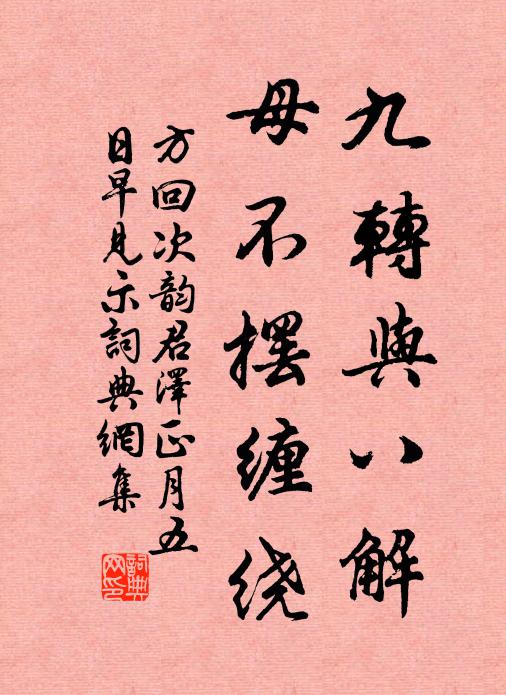 九轉與八解
毋不擺缠绕
方回次韵君澤正月五
日早見示詞典網集
詞典網印